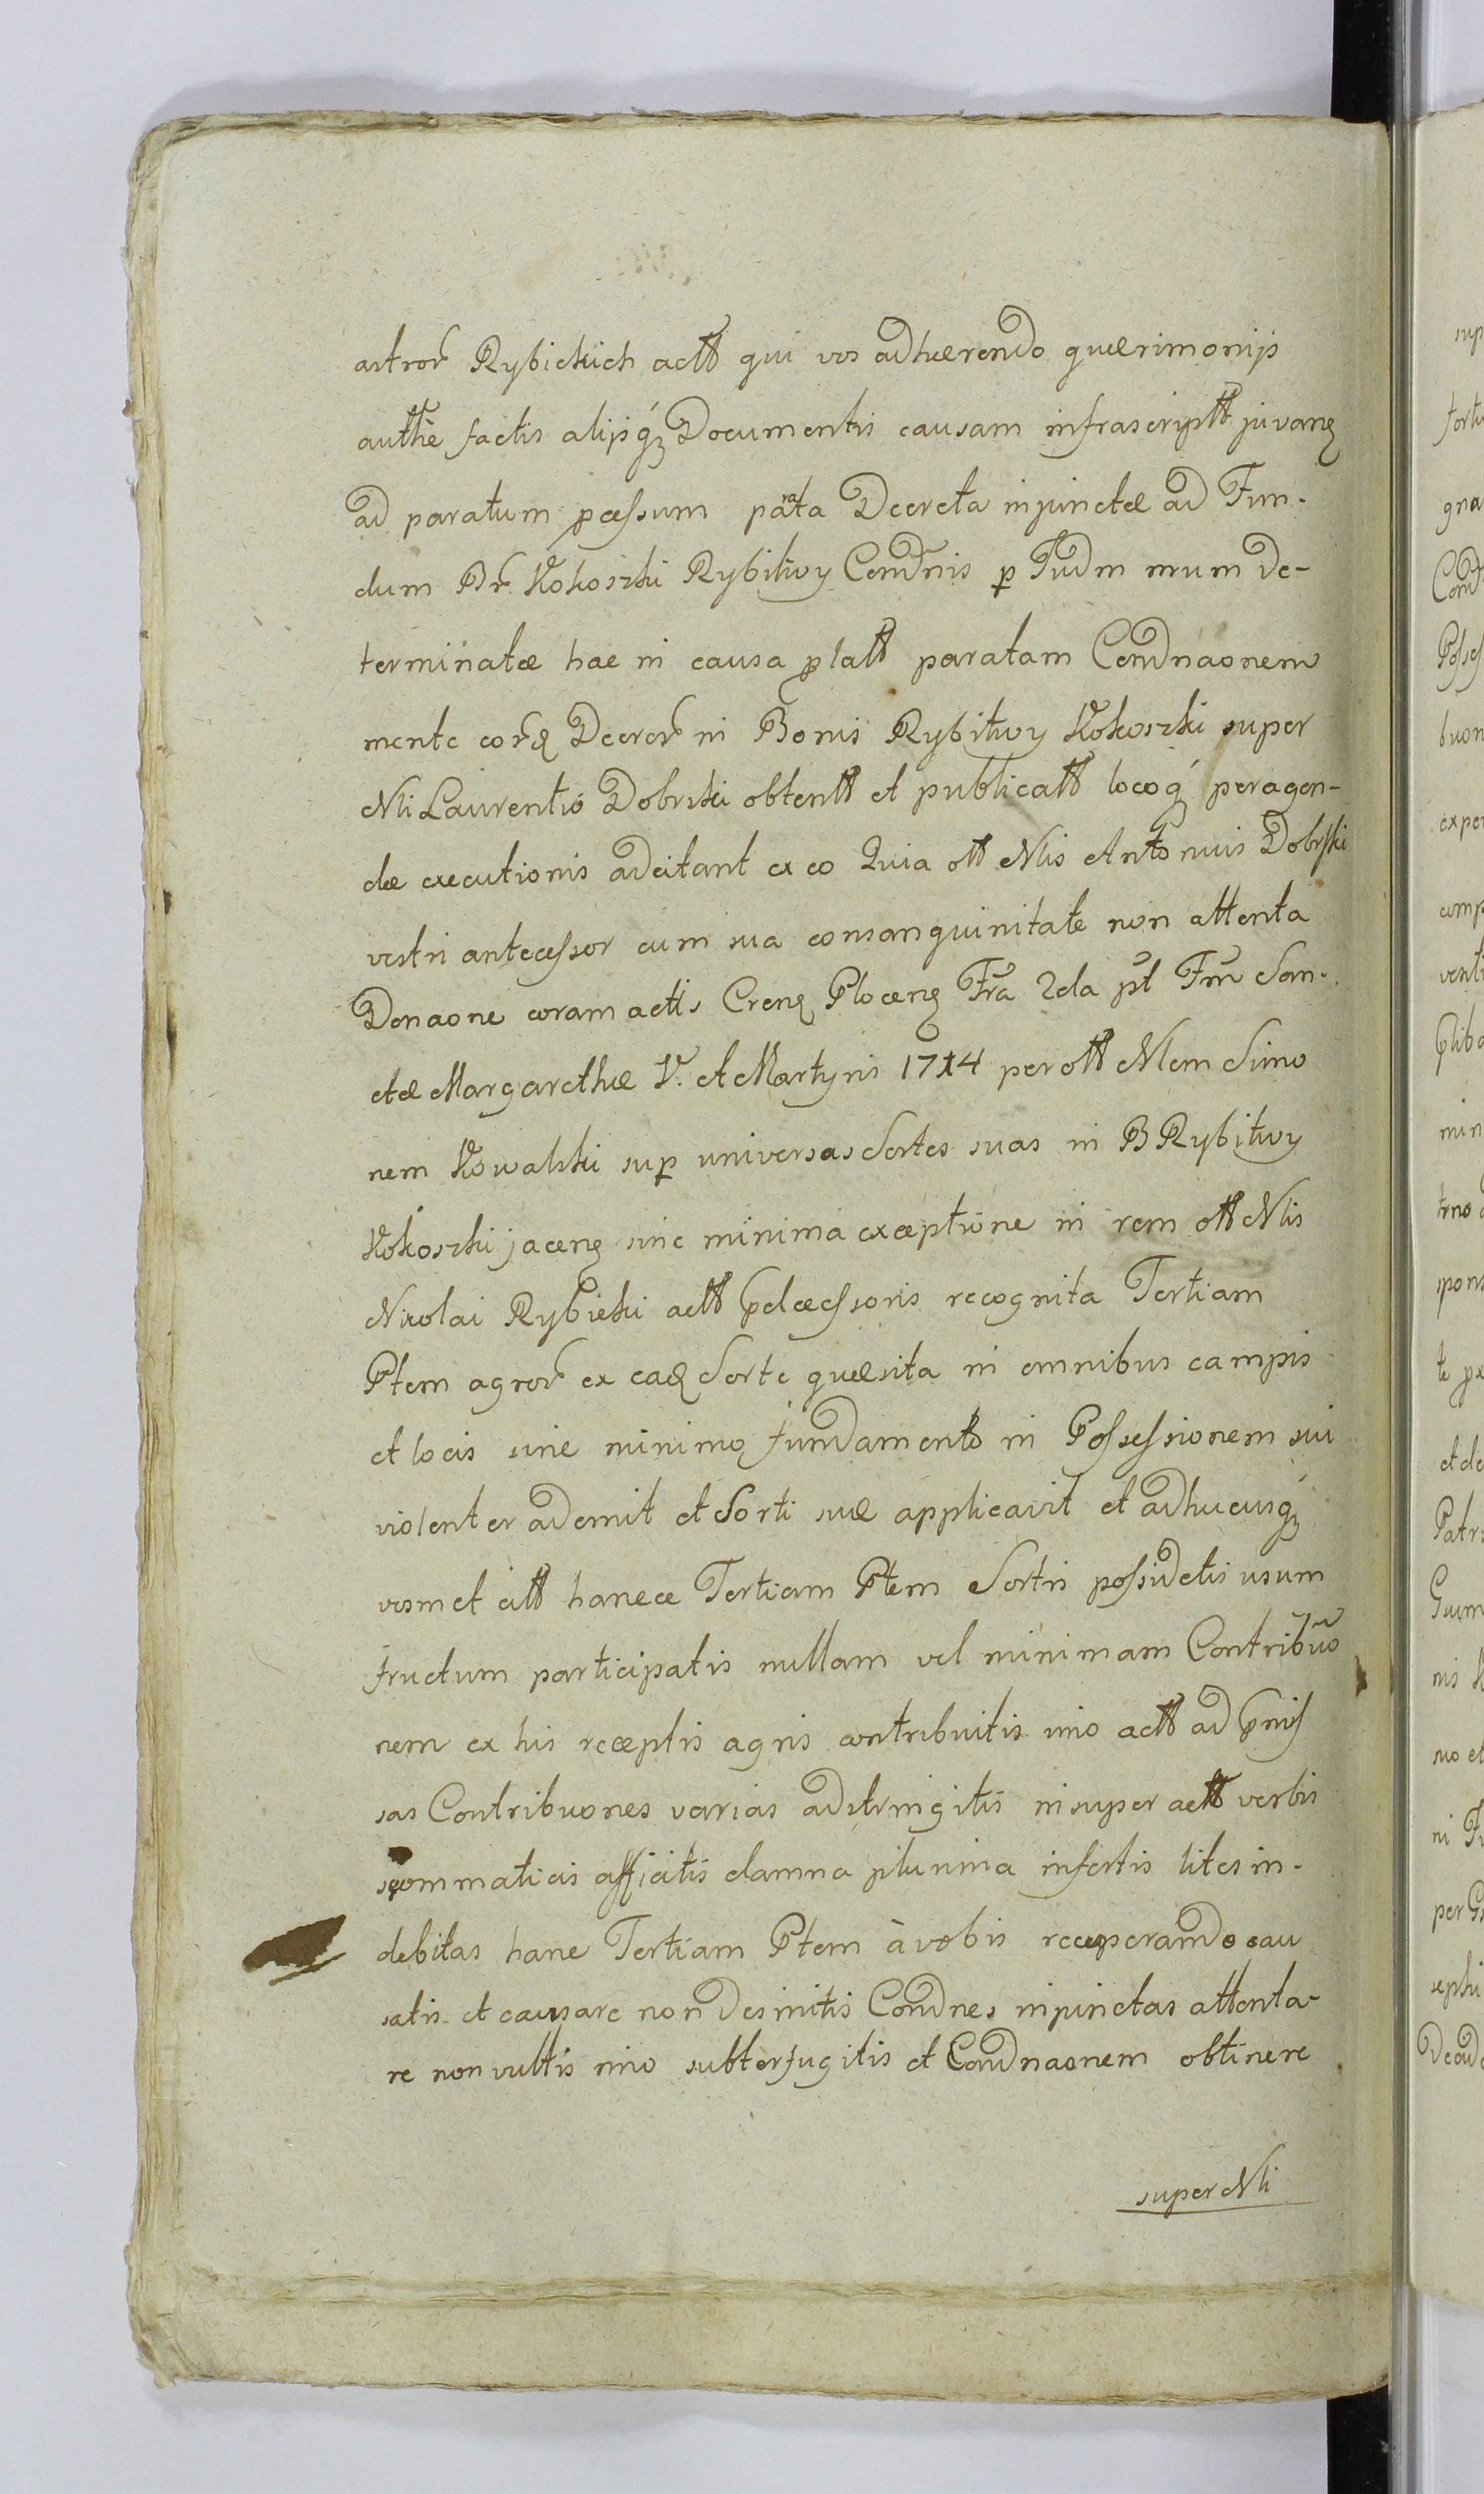 astror Rybickich actt qui vos adhærendo quærimonijs
autthe factis alijsq; Documentis causam infrascriptt juvanȩ
ad paratum pcessum pata Decreta injunctæ ad Fun-
dum Br Kokoszki Rybitwy Condnis p Judm mum de-
terminatæ hac in causa platt paratam Condnaonem
mente eorȩ Decror in Bonis Rybitwy Kokoszki super
Nli Laurentio Dobrski obtentt et publicatt locoq peragen-
dæ executionis adcitant ex eo Quia ott Nlis Antonius Dobrski
vestri antecessor cum sua consanguinitate non attenta
Donaone coram actis Crenȩ Plocenȩ Fra 2da pt Fm San-
ctæ Margarethæ V. et Martyris 1714 per ott Nlem Simo
nem Kowalski sup universas Sortes suas in B Rybitwy
Kokoszki jacenȩ sine minima exceptione in rem ott Nlis
Nicolai Rybicki actt pdecessoris recognita Tertiam
Ptem agror ex eaȩ Sorte quæsita in omnibus campis
et locis sine minimo fundamento in Possessionem sui
violenter ademit et Sorti suæ applicavit et adhucusq;
vosmet citt hancce Tertiam Ptem Sortis possidetis usum
fructum participatis nullam vel minimam Contribuo
nem ex his receptis agris contribuitis imo actt ad pmis
sas Contribuones varias adstringitis insuper actt verbis
scommaticis afficitis damna plurima infertis lites in-
debitas hanc Tertiam Ptem à vobis recuperando cau
satis et causare non desinitis Condnes injunctas attenta-
re non vultis imo subterfugitis et Condnaonem obtinere
super Nli